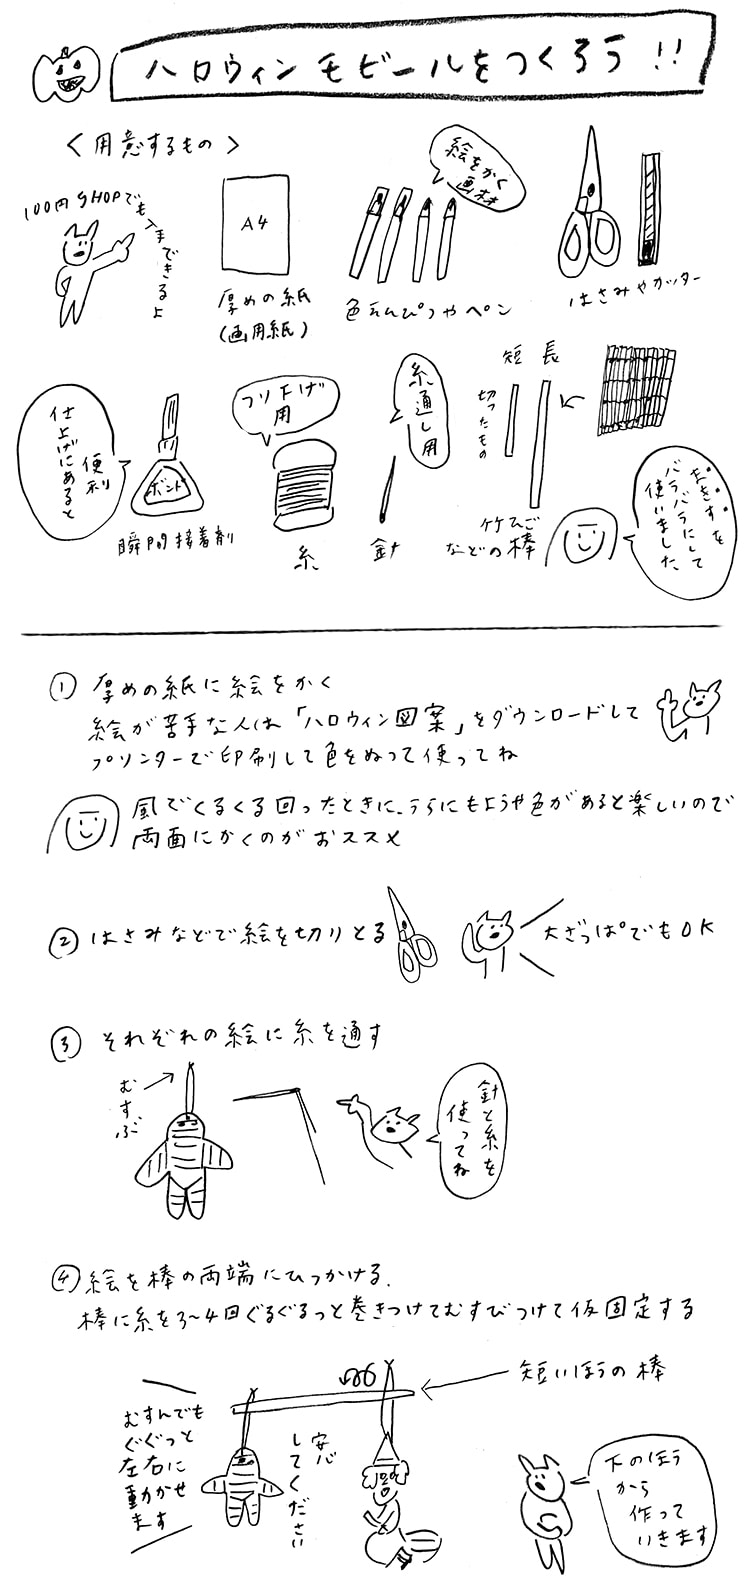 ハロウィンモビールをつくろう!!
<用意するもの>
100円SHOPでも入手できるよ
A4
厚めの紙
(画用紙)
絵をかく
画材
色えんぴつやペン
はさみやカッター
仕上げにあると
便利
ボンド
瞬間接着剤
つり下げ
用
糸
糸通し用
針
短
長
切ったもの
竹ひご
などの棒
まきすを
バラバラにして
使いました。
① 厚めの紙に絵をかく
絵が苦手な人は「ハロウィン図案」をダウンロードして
プリンターで印刷して色をぬって使ってね
風でくるくる回ったときに、うらにもようや色があると楽しいので
両面にかくのがおススメ
② はさみなどで絵を切りとる
大ざっぱでもOK
③ それぞれの絵に糸を通す
むすぶ
針と糸を
使ってね
④ 絵を棒の両端にひっかける.
棒に糸を3~4回ぐるぐるっと巻きつけてむすびつけて仮固定する
短いほうの棒
むすんでも
ぐぐっと
左右に
動かせ
ます
安心
してください
下のほう
から
作って
いきます